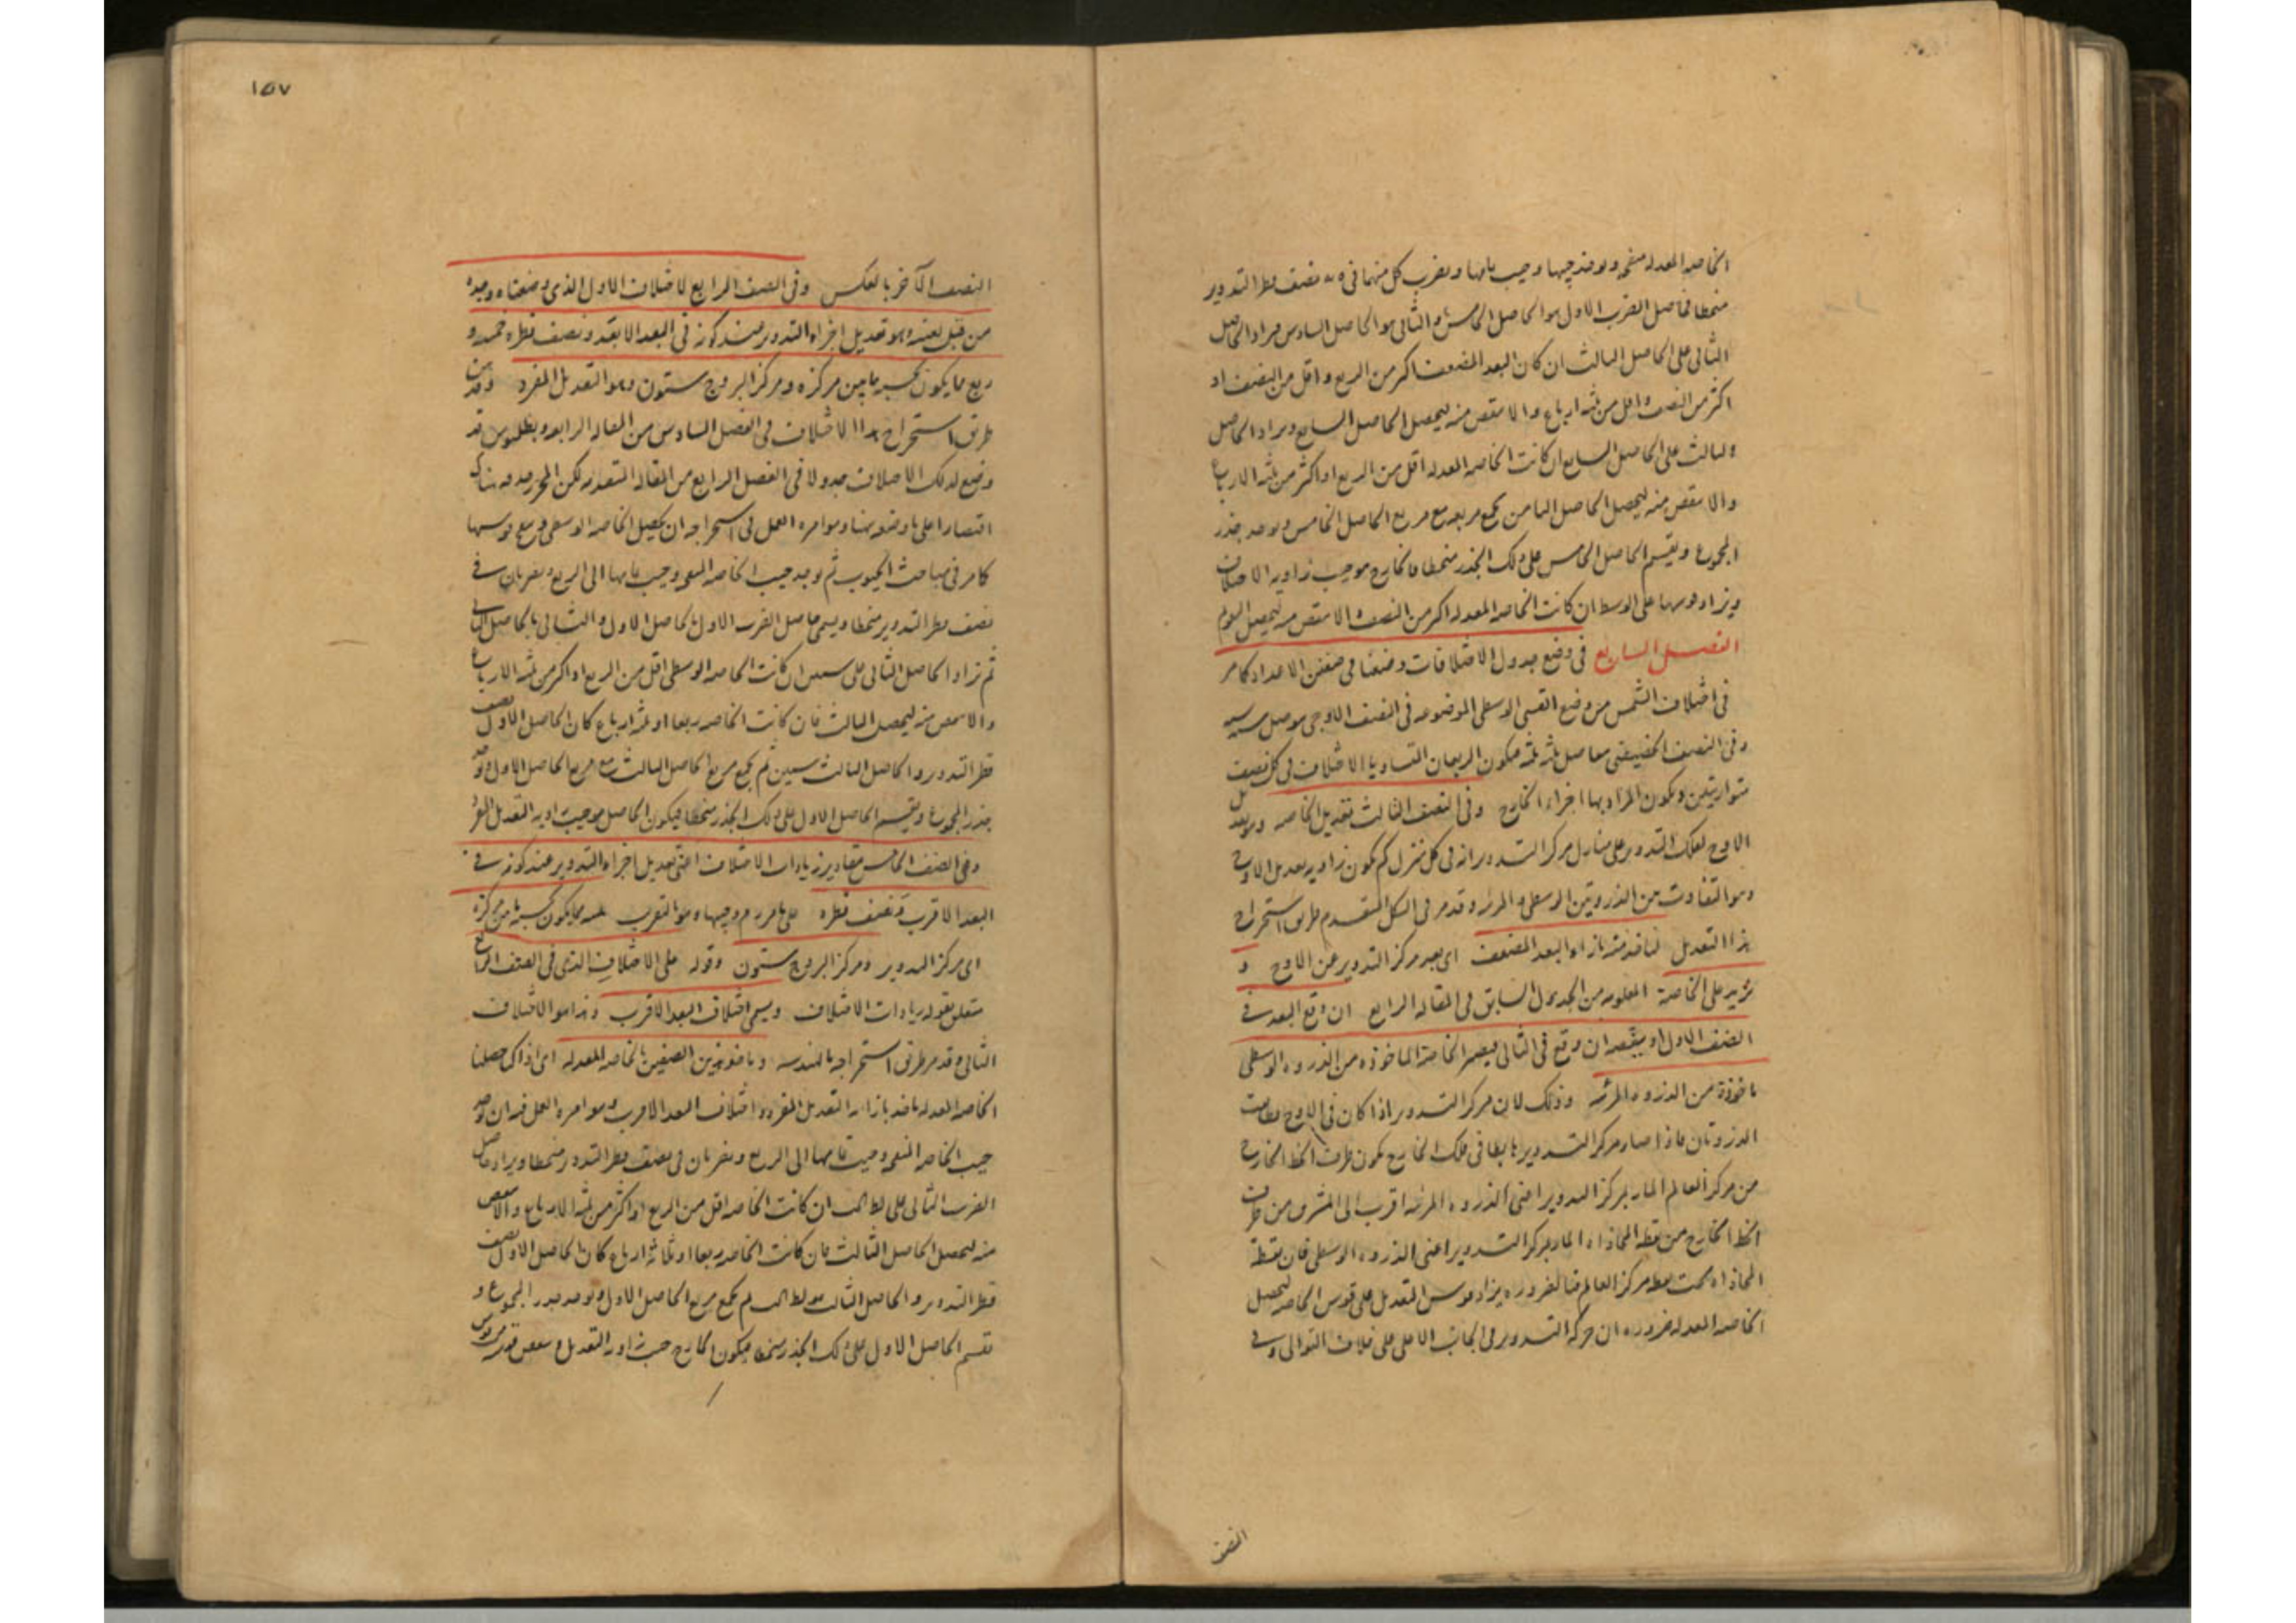 الخاصه المعدله منقحه ويوخذ جيبها وجيب تمامها ويضرب كل منهما في نصف قطر التدوير
منحطا فحاصل الضرب الاول هو الحاصل الخامس والثانى هو الحاصل السادس فيزاد الحاصل
الثانى على الحاصل الثالث ان كان البعد المضعف اكثر من الربع واقل من النصف او
اكثر من النصف واقل من ثلثه ارباع والا ينقص منه ليحصل الحاصل السابع ويزاد الحاصل
على الحاصل السابع ان كانت الخاصه المعدله اقل من الربع او اكثر من ثلثه الارباع
والا ينقص منه ليحصل الحاصل الثامن يجمع مربعه مع مربع الحاصل الخامس ويوخذ جذر
المجموع ويقسم الحاصل الخامس على ذلك الجذر منحطا فالخارج هو جيب زاويه الاختلاف
ويزاد قوسها على الوسط ان كانت الخاصه المعدله اكثر من النصف والا ينقص منه ليحصل المقوم
الفصل السابع في وضع جدول الاختلافات وضعنا في صفين الاعداد كما مر
في اختلاف الشمس من وضع القسى الوسطى الموضوعه في النصف الاوجى
وفى النصف الحضيضى بتفاضل ثلثه ثلثه فيكون الربعان المتساويا الاختلاف في كل نصف
متوازيتين ويكون المراد بها اجزاء الخارج وفى الصف الثالث تعديل الخاصه
الاوج لفلك التدوير على منازل مركز التدوير انه في كل منزل كم يكون زاويه تعديل الاوج
وهو التفاوت بين الذروتين الوسطى والمرئيه وقد مر في الشكل المتقدم طريق استخراج
هذا التعديل لناخذ منه بازاء البعد المضعف اى بعد مركز التدوير عن الاوج و
نزيد على الخاصة المعلومه من الجدول السابق في المقاله الرابع ان وقع البعد في
الصف الاول او ينقصه ان وقع في الثانى فيصير الخاصة الماخوذه من الذروه الوسطى
ماخوذة من الذروه المرئيه وذلك لان مركز التدوير اذا كان في الاوج تطابقت
الذروتان فاذا صار مركز التدوير هابطا في فلك الخارج يكون طرف الخط الخارج
من مركز العالم المار بمركز التدوير اعنى الذروه المرئيه اقرب الى المشرق من طرف
الخط الخارج من نقطه المحاذاه المار بمركز التدوير اعنى الذروه الوسطى فان نقطة
المحاذاه تحت نقطه مركز العالم فبالضروره يزاد قوس التعديل على قوس الخاصه ليحصل
الخاصه المعدله ضروره ان حركه التدوير في الجانب الاعلى على خلاف التوالى وفى
النصف
١٥٧
النصف الآخر بالعكس وفى الصف الرابع الاختلاف الاول الذى وضعناه وحده
من قبل بعينه وهو تعديل اجزاء التدوير عند كونه في البعد الابعد ونصف قطره خمسه و
ربع مما يكون به ما بين مركزه ومركز البروج ستون وهو التعديل المفرد وقد مر
طريق استخراج هذا الاختلاف في الفصل السادس من المقاله الرابعه وبطلميوس قد
وضع لذلك الاختلاف جدولا في الفصل الرابع من المقاله المتقدمه لكن المحرر حذفه هناك
اقتصارا على ما وضعه هنا وموامره العمل في استخراجه ان يحصل الخاصه الوسطى
كما مر في مباحث الجيوب ثم يوجد جيب الخاصه المنقحه وجيب تمامها الى الربع ويضربان في
نصف قطر التدوير منحطا ويسمى حاصل الضرب الاول بالحاصل الاول والثانى بالحاصل الثانى
ثم يزاد الحاصل الثانى على ستين ان كانت الخاصه الوسطى اقل من الربع او اكثر من ثلثه الارباع
والا ينقص منه ليحصل الثالث فان كانت الخاصه ربعا او ثلثه ارباع كان الحاصل الاول نصف
قطر التدوير والحاصل الثالث ستين ثم يجمع مربع الحاصل الثالث مع مربع الحاصل الاول ويوخذ
جذر المجموع ويقسم الحاصل الاول على ذلك الجذر منحطا فيكون الحاصل هو جيب زاويه التعديل المفرد
وفى الصف الخامس مقادير زيادات الاختلاف اعنى تعديل اجزاء التدوير عند كونه في
البعد الاقرب ونصف قطره على ما مر وجيبها هو بالتقريب ثمانيه مما يكون به ما بين مركزه
اى مركز التدوير ومركز البروج ستون وقوله على الاختلاف الذى في الصف الرابع
متعلق بقوله زيادات الاختلاف ويسمى اختلاف البعد الاقرب وهذا هو الاختلاف
الثانى وقد مر طريق استخراجه بالهندسه وناخذ من الصفين بالخاصه المعدله اى اذا حصلنا
الخاصه المعدله ناخذ بازائه التعديل المفرد واختلاف البعد الاقرب وموامره العمل فيه ان يوخذ
جيب الخاصه المنقحه وجيب تمامها الى الربع ويضربان في نصف قطر التدوير منحطا ويزاد حاصل
الضرب الثانى على ان كانت الخاصه اقل من الربع او اكثر من ثلثه الارباع والا ينقص
منه ليحصل الحاصل الثالث فان كانت الخاصه ربعا او ثلاثة ارباع كان الحاصل الاول نصف
قطر التدوير والحاصل الثالث ثم يجمع مربع الحاصل الاول ويوخذ جذر المجموع و
يقسم الحاصل الاول على ذلك الجذر منحطا فيكون الخارج جيب زاويه التعديل وينقص قوسه